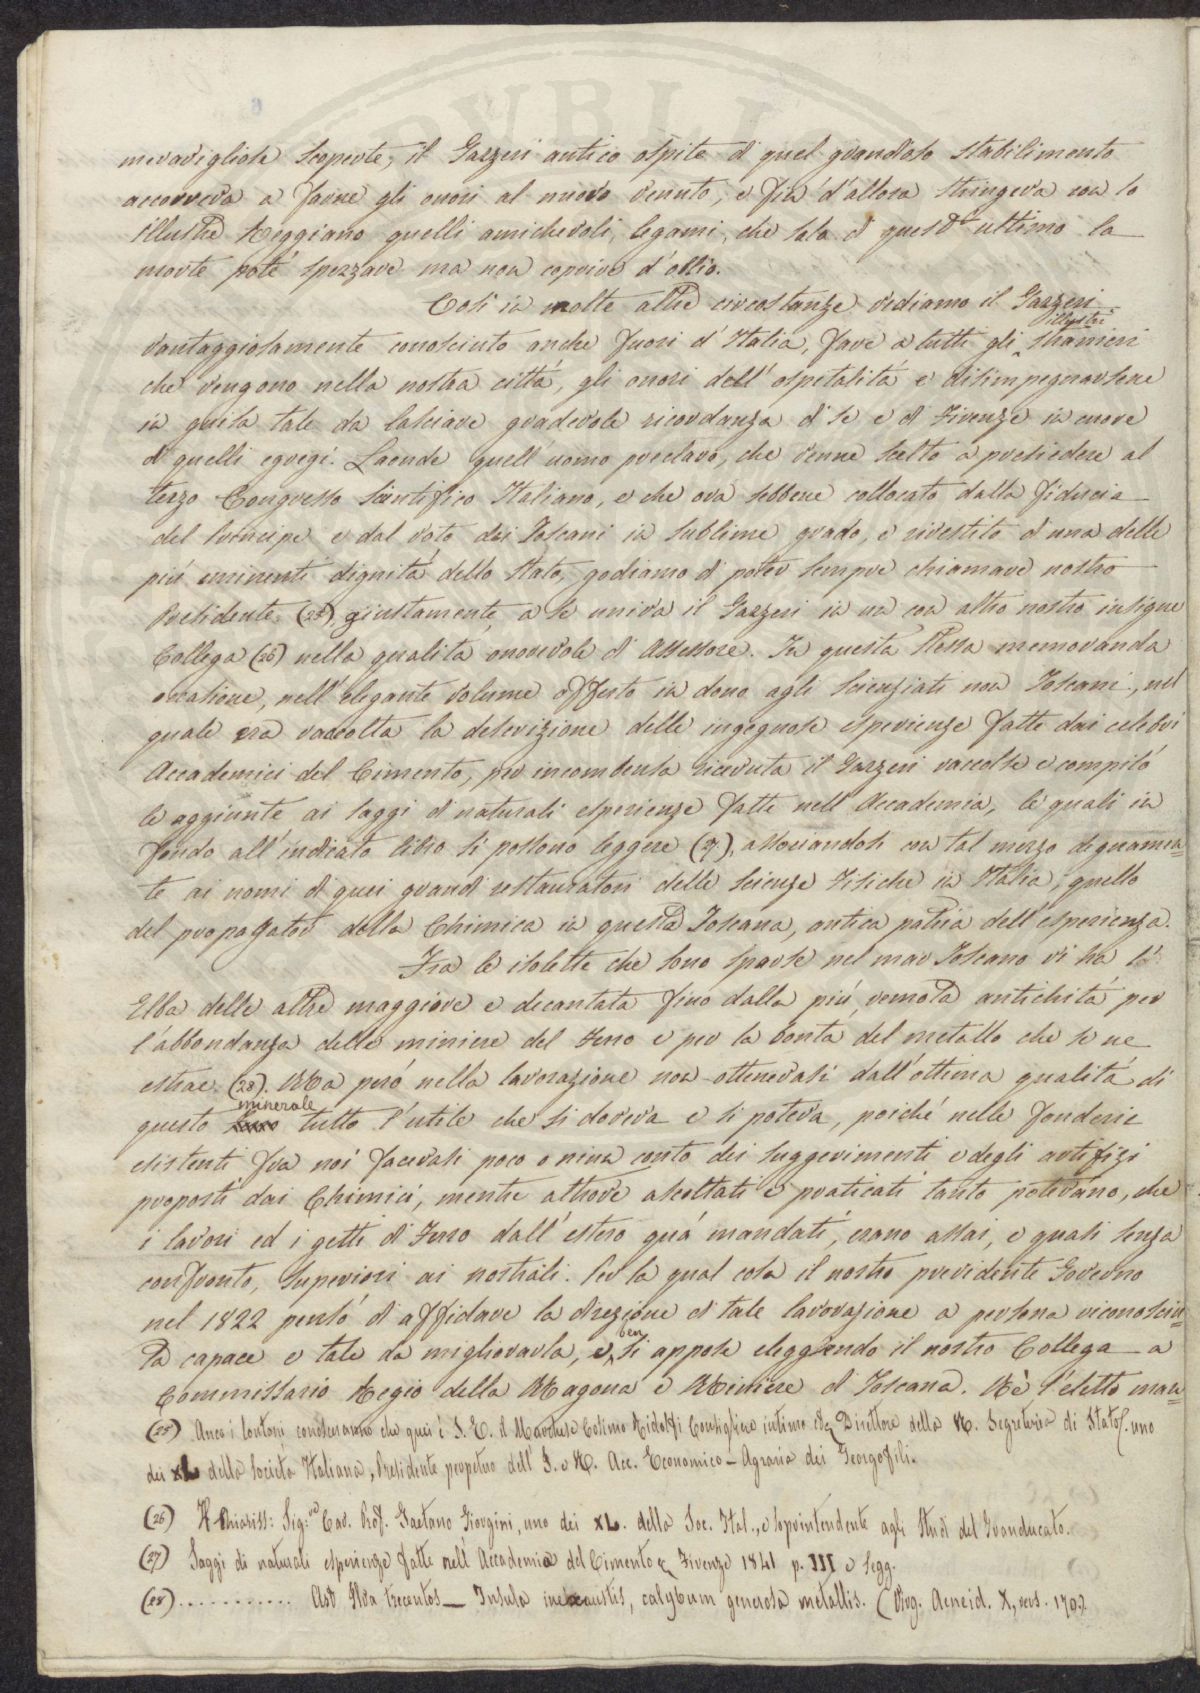 meravigliose scoperte, il Gazzeri antico ospite di quel grandioso stabilimento
accorreva a farne gli onori al nuovo venuto, e fin d'allora stringeva con lo
illustre Reggiano quelli amichevoli legami, che sola di quest'ultimo la
morte poté spezzare ma non coprire d'oblio.
Così in molte altre circostanze vediamo il Gazzeri
vantaggiosamente conosciuto anche fuori d'Italia, fare a tutti gli illustri stranieri
che vengono nella nostra città, gli onori dell'ospitalità e disimpegnarsene
in guisa tale da lasciare gradevole ricordanza di se e di Firenze in cuore
di quelli egregi. Laonde quell'uomo preclaro, che venne scelto a presiedere al
terzo Congresso Scientifico Italiano, e che ora sebbene collocato dalla fiducia
del Principe e dal voto dei Toscani in sublime grado, e rivestito d'una delle
più eminenti dignità dello Stato, godiamo di poter sempre chiamare nostro
Presidente (25), giustamente a se univa il Gazzeri in un con altro nostro insigne
Collega (26) nella qualità onorevole di Assessore. In questa stessa memoranda
occasione, nell'elegante volume offerto in dono agli Scienziati non Toscani, nel
quale era raccolta la descrizione delle ingegnose esperienze fatte dai celebri
Accademici del Cimento, per incombenza ricevuta il Gazzeri raccolse e compilò
le aggiunte ai saggi di naturali esperienze fatte nell'Accademia, le quali in
fondo all'indicato libro si possono leggere (27), associandosi con tal mezzo degnamen=
te ai nomi di quei grandi restauratori delle Scienze Fisiche in Italia, quello
del propagator della Chimica in questa Toscana, antica patria dell'esperienza.
Fra le isolette che sono sparse nel mar Toscano vi ha l'
Elba delle altre maggiore e decantata fino dalla più remota antichità per
l'abbondanza delle miniere del Ferro e per la bontà del metallo che se ne
estrae (28). Ma però nella lavorazione non ottenevasi dall'ottima qualità di
questo minerale tutto l'utile che si doveva e si poteva, poiché nelle fonderie
esistenti fra noi facevasi poco o niun conto dei suggerimenti e degli artifizi
proposti dai Chimici, mentre altrove ascoltati e praticati tanto potevano, che
i lavori ed i getti di Ferro dall'estero quà mandati, erano assai, e quasi senza
confronto, superiori ai nostrali. Per la qual cosa il nostro previdente Governo
nel 1822 pensò di affidare la direzione di tale lavorazione a persona riconosciu=
ta capace e tale da migliorarla, e ben si appose eleggendo il nostro Collega a
Commissario Regio della Magona e Miniere di Toscana. Nè l'eletto man
(25) Anco i lontani conosceranno che quei è S. E. il Marchese Cosimo Ridolfi Consigliere intimo & Direttore della R. Segreteria di Stato, uno
dei XL della Società Italiana, Presidente perpetuo dell'I. e R. Acc. Economico-Agraria dei Georgofili.
(26) Il Chiariss: Sig:re Cav. Prof. Gaetano Giorgini, uno dei XL. della Soc. Ital., e soprintendente agli Studi del Granducato.
(27) Saggi di naturali esperienze fatte nell'Accademia del Cimento & Firenze 1841 p. III e segg.
(28) ........... Ast Ilva trecentos — Insula inexaustis, calybum generosa metallis. (Virg. Aeneid. X, vers. 170.)